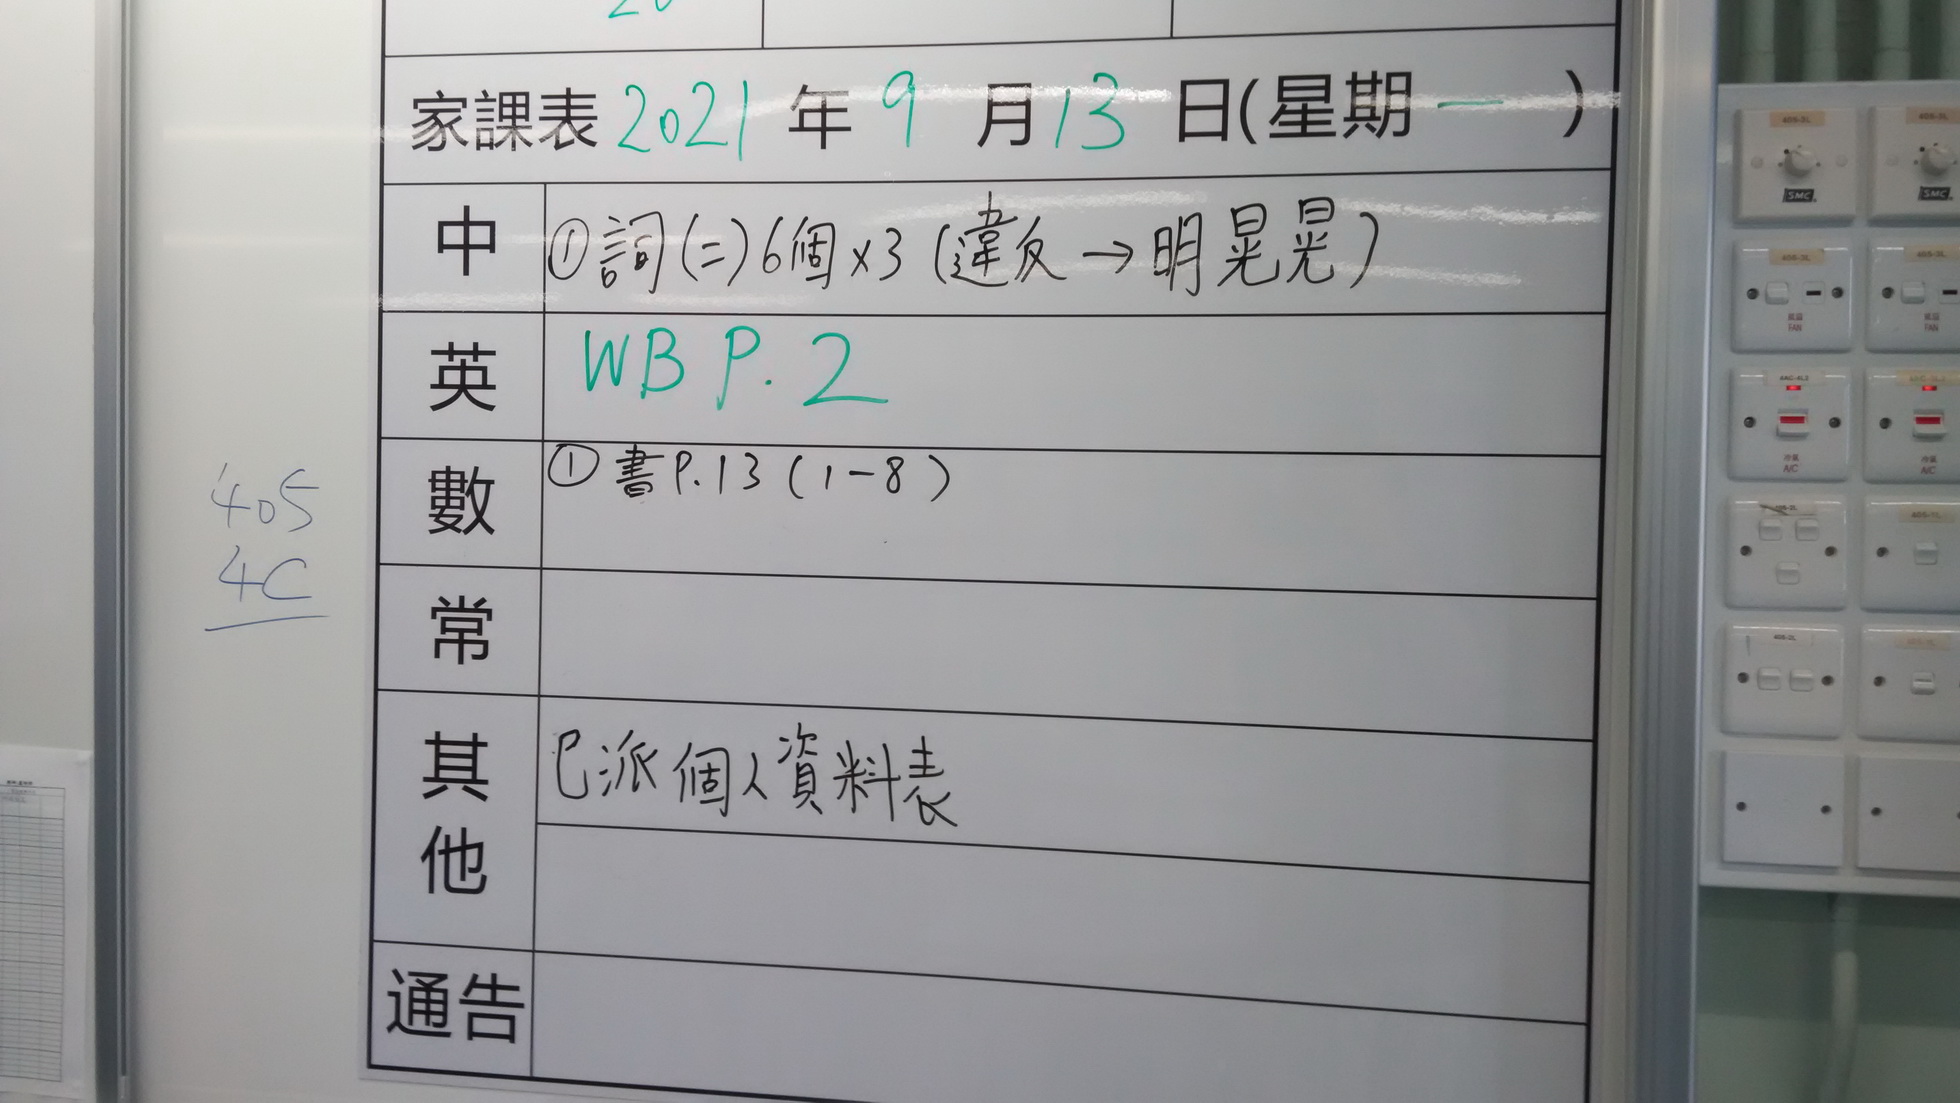 20
家課表 2021 年 9 月 13 日(星期一 )
中 ①詞(二)6個×3(違反→明晃晃)
英 WB P.2
數 ①書P.13(1-8)
常
其他 已派個人資料表
通告
405
4C
SMC
SMC
風扇
FAN
風扇
FAN
冷氣
A/C
冷氣
A/C